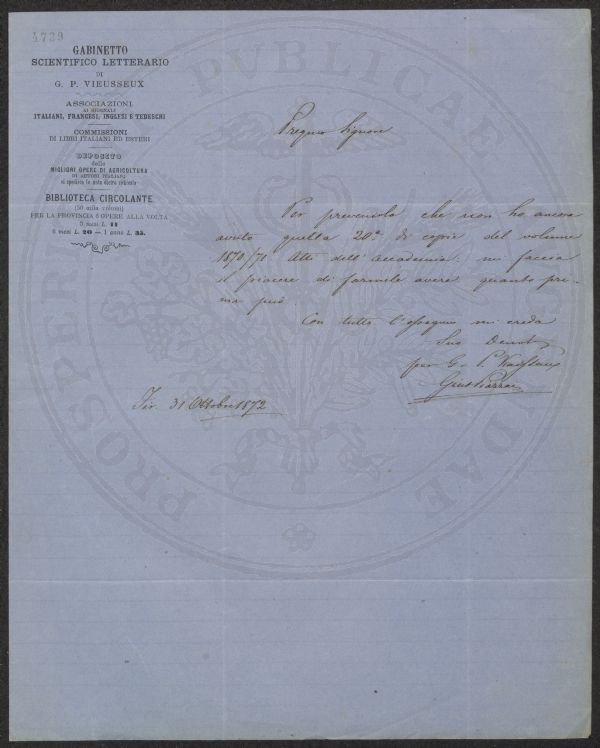 4739
GABINETTO
SCIENTIFICO LETTERARIO
DI
G. P. VIEUSSEUX
ASSOCIAZIONI
AI GIORNALI
ITALIANI, FRANCESI, INGLESI E TEDESCHI
COMMISSIONI
DI LIBRI ITALIANI ED ESTERI
DEPOSITO
delle
MIGLIORI OPERE DI AGRICOLTURA
DI AUTORI ITALIANI
si spedisce la nota dietro richiesta
BIBLIOTECA CIRCOLANTE
(50 mila volumi)
PER LA PROVINCIA 6 OPERE ALLA VOLTA
3 mesi L. 11
6 mesi L. 20 — 1 anno L. 35.
Pregmo Signore
Per prevenirla che non ho ancora
avuto quella 20a di copie del volume
1870/71 Atti dell'accademia: mi faccia
il piacere di farmele avere quanto pri-
ma può.
Con tutto l'ossequio mi creda
Suo Devot
per G. P. Vieusseux
Fir. 31 Ottobre 1872
PROSPERITATI PUBLICAE AUGENDAE